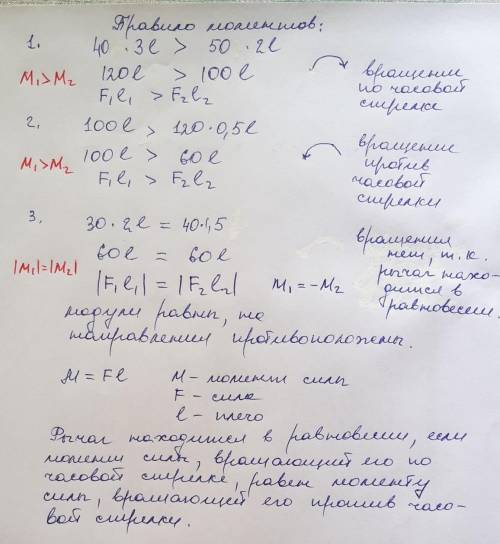 Правило моментов:
1.
40 · 3l > 50 · 2l
M₁>M₂
120l > 100l
F₁l₁ > F₂l₂
вращение
по часовой
стрелке
2.
100l > 120·0,5l
M₁>M₂
100l > 60l
F₁l₁ > F₂l₂
вращение
против
часовой
стрелки
3.
30 · 2l = 40·1,5
|M₁|=|M₂|
60l = 60l
|F₁l₁| = |F₂l₂| M₁ = -M₂
вращения
нет, т.к.
рычаг нахо-
дится в
равновесии.
модули равны, но
направления противоположны.
M = Fl
M – момент силы
F – сила
l – плечо
Рычаг находится в равновесии, если
момент силы, вращающий его по
часовой стрелке, равен моменту
силы, вращающей его против часо-
вой стрелки.